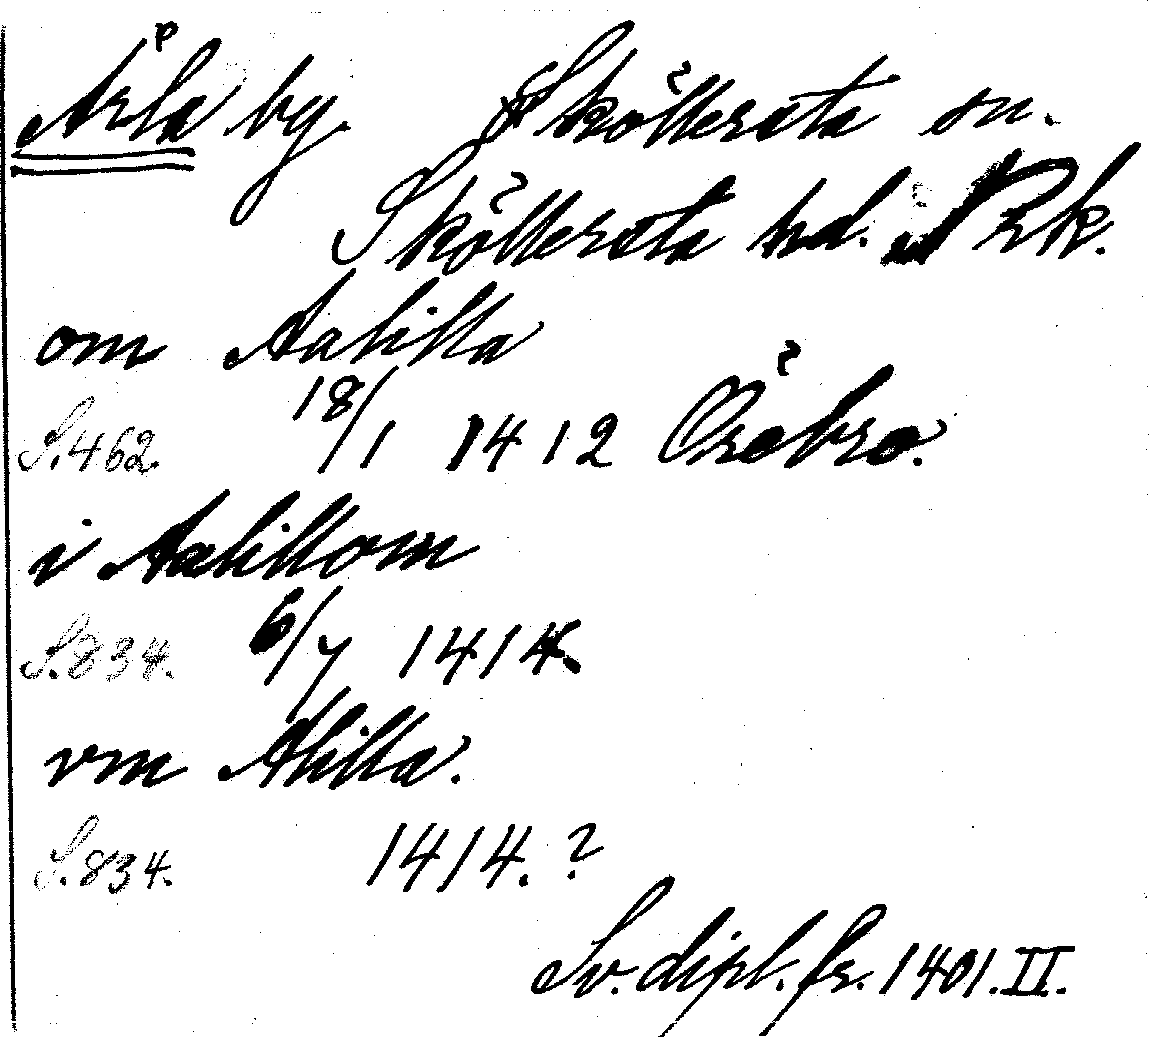 Årla by. Sköllersta sn.
Sköllersta hd. Nrk.
om Aahilla
S. 462. 18/1 1412 Örebro.
i Aahillom
S. 834. 6/7 1414.
vm Ahilla.
S. 834. 1414.?
Sv. dipl. fr. 1401. II.